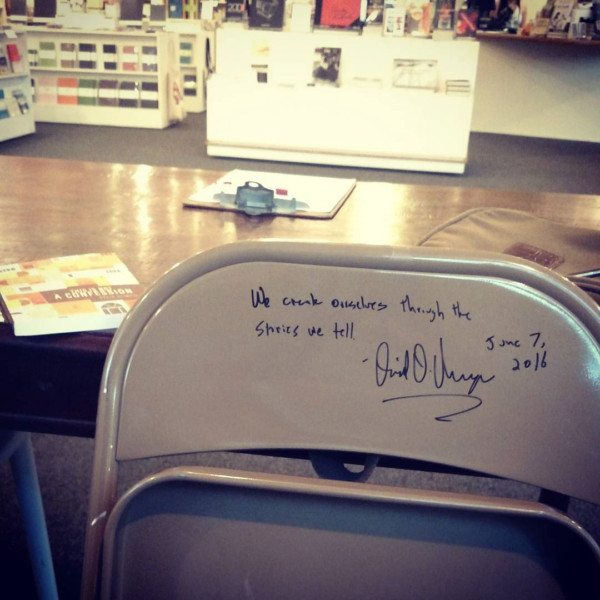 We create ourselves through the
stories we tell.
June 7,
2016
A CONVERSION